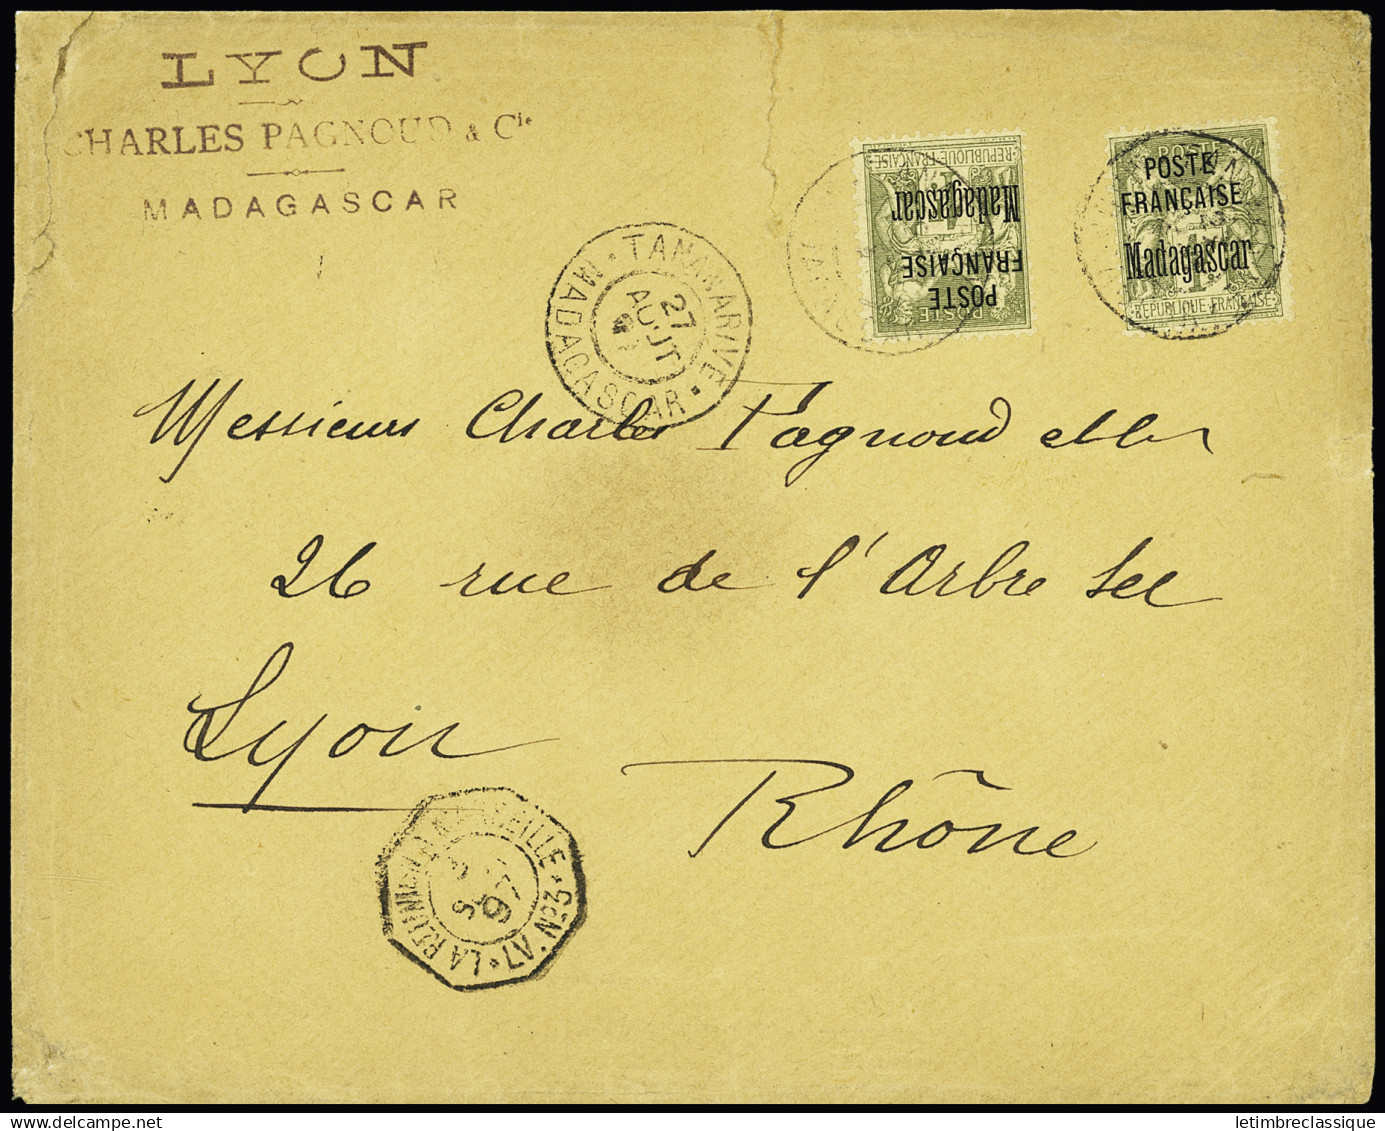 LYON
CHARLES PAGNOUD & Cie
MADAGASCAR
POSTE
FRANÇAISE
Madagascar
RÉPUBLIQUE FRANÇAISE
POSTES
POSTE
FRANÇAISE
Madagascar
RÉPUBLIQUE FRANÇAISE
TANANARIVE
27
AOUT
97
MADAGASCAR
Messieurs Charles Pagnoud et Cie
26 rue de l'Arbre Sec
Lyon
Rhône
LA RÉUNION A MARSEILLE
97
letimbreclassique